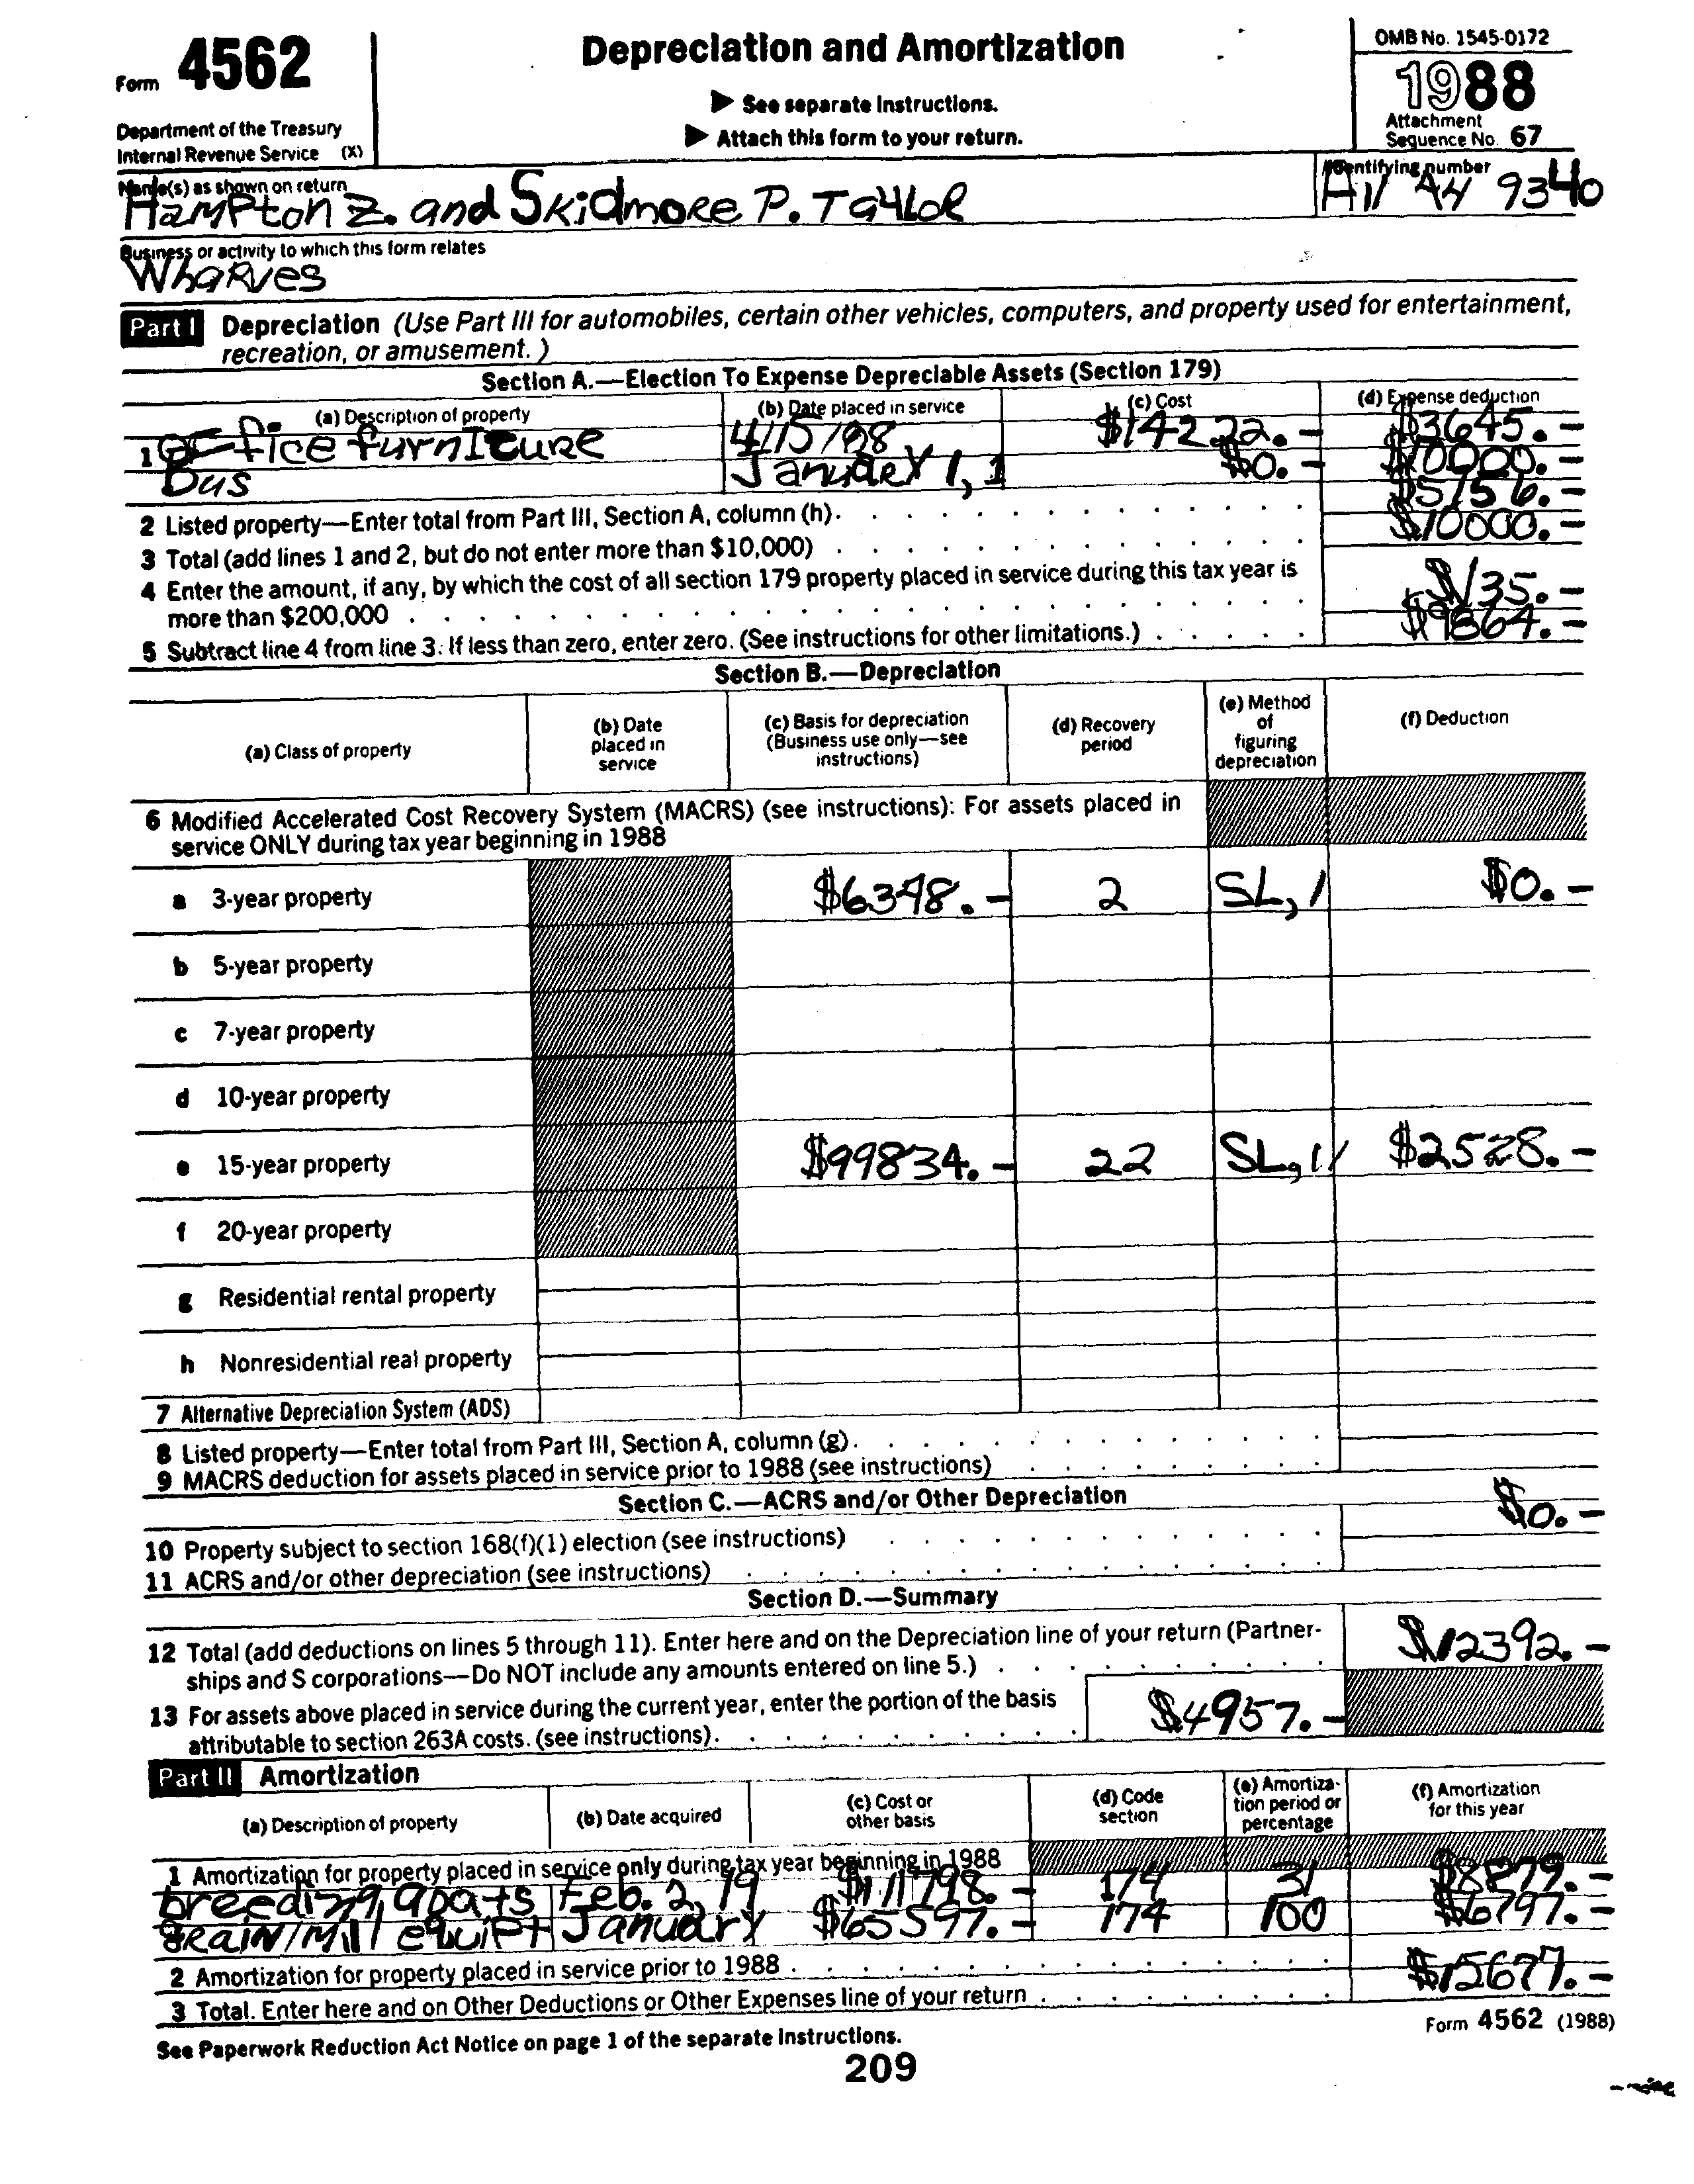 Form 4562
Department of the Treasury
Internal Revenue Service (X)
Depreciation and Amortization
▶ See separate Instructions.
▶ Attach this form to your return.
OMB No. 1545-0172
1988
Attachment
Sequence No. 67
Name(s) as shown on return
Hampton Z. and Skidmore P. Taylor
Identifying number
9340
Business or activity to which this form relates
Wharves
Part I Depreciation (Use Part III for automobiles, certain other vehicles, computers, and property used for entertainment,
recreation, or amusement.)
Section A.—Election To Expense Depreciable Assets (Section 179)
(a) Description of property (b) Date placed in service (c) Cost (d) Expense deduction
1 Office furniture 4/15/98 $14222.- $3645.-
Bus January 1, 1 $0.- $10000.-
2 Listed property—Enter total from Part III, Section A, column (h). $5156.-
3 Total (add lines 1 and 2, but do not enter more than $10,000) $10000.-
4 Enter the amount, if any, by which the cost of all section 179 property placed in service during this tax year is
more than $200,000 $135.-
5 Subtract line 4 from line 3. If less than zero, enter zero. (See instructions for other limitations.) $9864.-
Section B.—Depreciation
(a) Class of property (b) Date placed in service (c) Basis for depreciation (Business use only—see instructions) (d) Recovery period (e) Method of figuring depreciation (f) Deduction
6 Modified Accelerated Cost Recovery System (MACRS) (see instructions): For assets placed in
service ONLY during tax year beginning in 1988
a 3-year property $6348.- 2 SL, 1 $0.-
b 5-year property
c 7-year property
d 10-year property
e 15-year property $99834.- 22 SL, 11 $2528.-
f 20-year property
g Residential rental property
h Nonresidential real property
7 Alternative Depreciation System (ADS)
8 Listed property—Enter total from Part III, Section A, column (g).
9 MACRS deduction for assets placed in service prior to 1988 (see instructions)
Section C.—ACRS and/or Other Depreciation
10 Property subject to section 168(f)(1) election (see instructions) $0.-
11 ACRS and/or other depreciation (see instructions)
Section D.—Summary
12 Total (add deductions on lines 5 through 11). Enter here and on the Depreciation line of your return (Partner-
ships and S corporations—Do NOT include any amounts entered on line 5.) $12392.-
13 For assets above placed in service during the current year, enter the portion of the basis
attributable to section 263A costs. (see instructions). $4957.-
Part II Amortization
(a) Description of property (b) Date acquired (c) Cost or other basis (d) Code section (e) Amortiza-tion period or percentage (f) Amortization for this year
1 Amortization for property placed in service only during tax year beginning in 1988
breeding goats Feb. 2, 19 $111798.- 174 31 $8879.-
GRAIN/Mill equipt January $65597.- 174 100 $6797.-
2 Amortization for property placed in service prior to 1988 $15677.-
3 Total. Enter here and on Other Deductions or Other Expenses line of your return
See Paperwork Reduction Act Notice on page 1 of the separate instructions.
Form 4562 (1988)
209